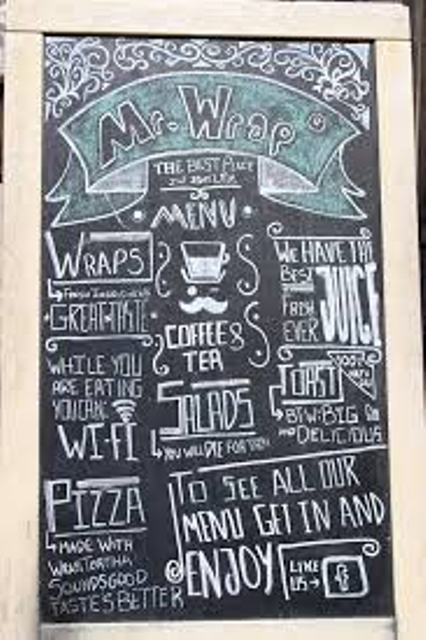 Mr. Wrap
THE BEST PLACE
MENU
WRAPS
FRESH INGREDIENTS
GREAT TASTE
WHILE YOU
ARE EATING
YOU CAN
WI-FI
PIZZA
MADE WITH
SOUNDS GOOD
TASTES BETTER
COFFEE &
TEA
SALADS
YOU WILL DIE FOR THEM
WE HAVE THE
BEST
FRESH
EVER
JUICE
TOAST
100%
BTW: BIG
AND DELICIOUS
TO SEE ALL OUR
MENU GET IN AND
ENJOY
LIKE
US → f